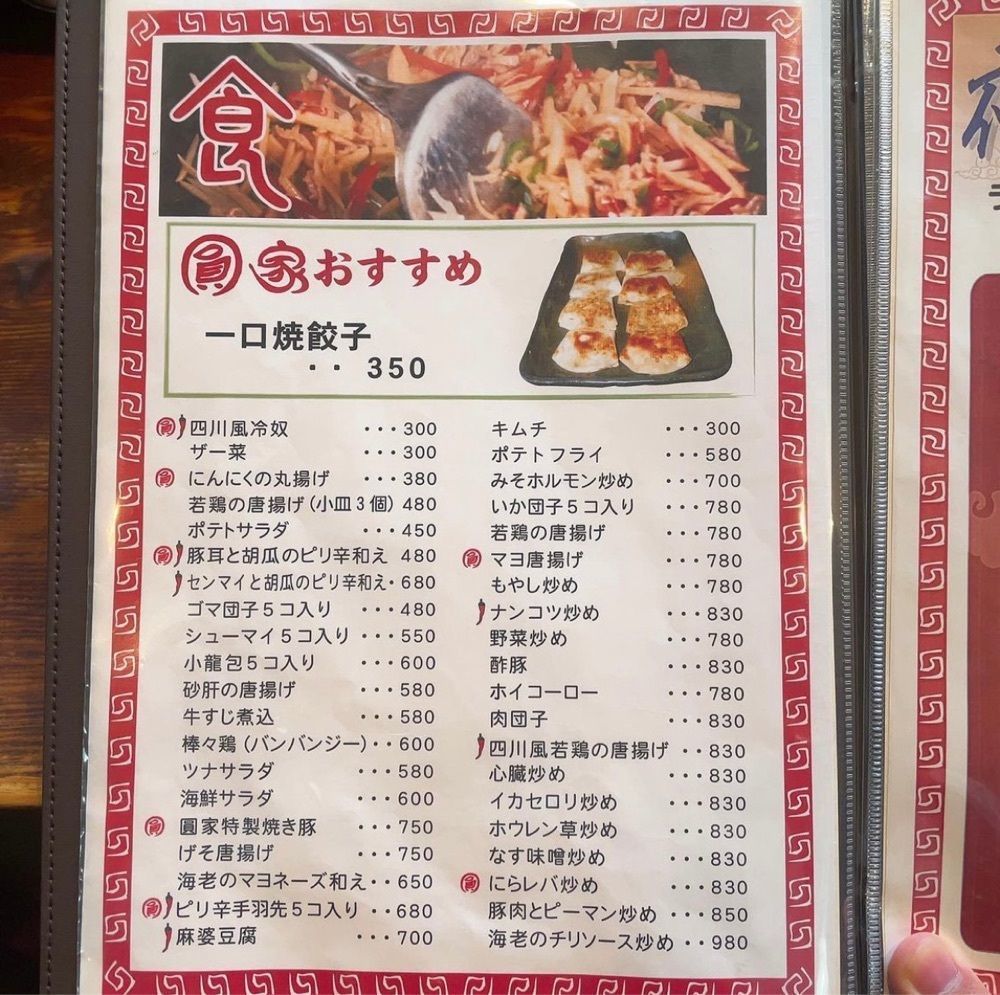 食
圓家おすすめ
一口焼餃子
‥ 350
圓 四川風冷奴 ･･･300
ザー菜 ･･･300
圓 にんにくの丸揚げ ･･･380
若鶏の唐揚げ(小皿3個) 480
ポテトサラダ ･･･450
圓 豚耳と胡瓜のピリ辛和え 480
センマイと胡瓜のピリ辛和え･ 680
ゴマ団子5コ入り ･･･480
シューマイ5コ入り ･･･550
小龍包5コ入り ･･･600
砂肝の唐揚げ ･･･580
牛すじ煮込 ･･･580
棒々鶏(バンバンジー)･･600
ツナサラダ ･･･580
海鮮サラダ ･･･600
圓 圓家特製焼き豚 ･･･750
げそ唐揚げ ･･･750
海老のマヨネーズ和え･･650
圓 ピリ辛手羽先5コ入り ･･680
麻婆豆腐 ･･･700
キムチ ･･･300
ポテトフライ ･･･580
みそホルモン炒め ･･･700
いか団子5コ入り ･･･780
若鶏の唐揚げ ･･･780
圓 マヨ唐揚げ ･･･780
もやし炒め ･･･780
ナンコツ炒め ･･･830
野菜炒め ･･･780
酢豚 ･･･830
ホイコーロー ･･･780
肉団子 ･･･830
四川風若鶏の唐揚げ ･･830
心臓炒め ･･･830
イカセロリ炒め ･･･830
ホウレン草炒め ･･･830
なす味噌炒め ･･･830
圓 にらレバ炒め ･･･830
豚肉とピーマン炒め ･･･850
海老のチリソース炒め ･･980